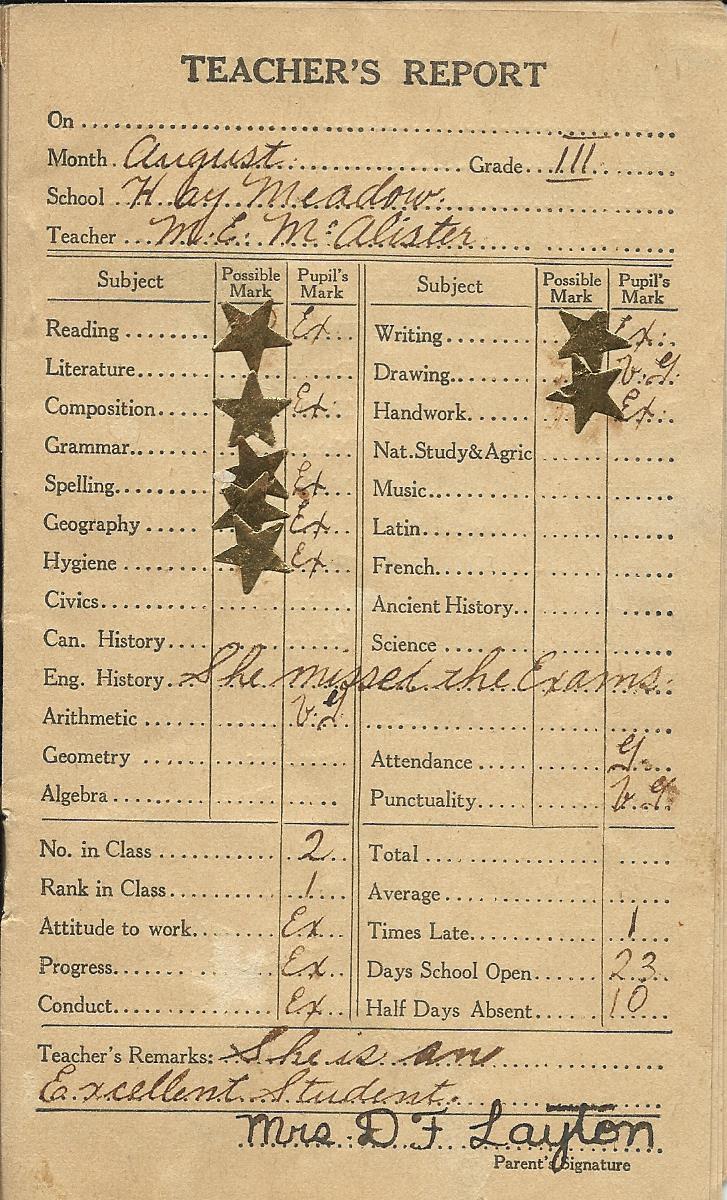 TEACHER'S REPORT
On
Month August Grade III
School Hay Meadow.
Teacher M. E. McAlister
Subject Possible Mark Pupil's Mark Subject Possible Mark Pupil's Mark
Reading Ex Writing Ex
Literature Drawing V.G.
Composition Ex Handwork Ex
Grammar Nat. Study & Agric
Spelling Ex Music
Geography Ex Latin
Hygiene Ex French
Civics Ancient History
Can. History Science
Eng. History She missed the Exams.
Arithmetic V.G
Geometry Attendance G.
Algebra Punctuality V.G
No. in Class 2 Total
Rank in Class 1 Average
Attitude to work Ex Times Late 1
Progress Ex Days School Open 23
Conduct Ex Half Days Absent 10
Teacher's Remarks: She is an
Excellent Student.
Mrs. D F Layton
Parent's Signature